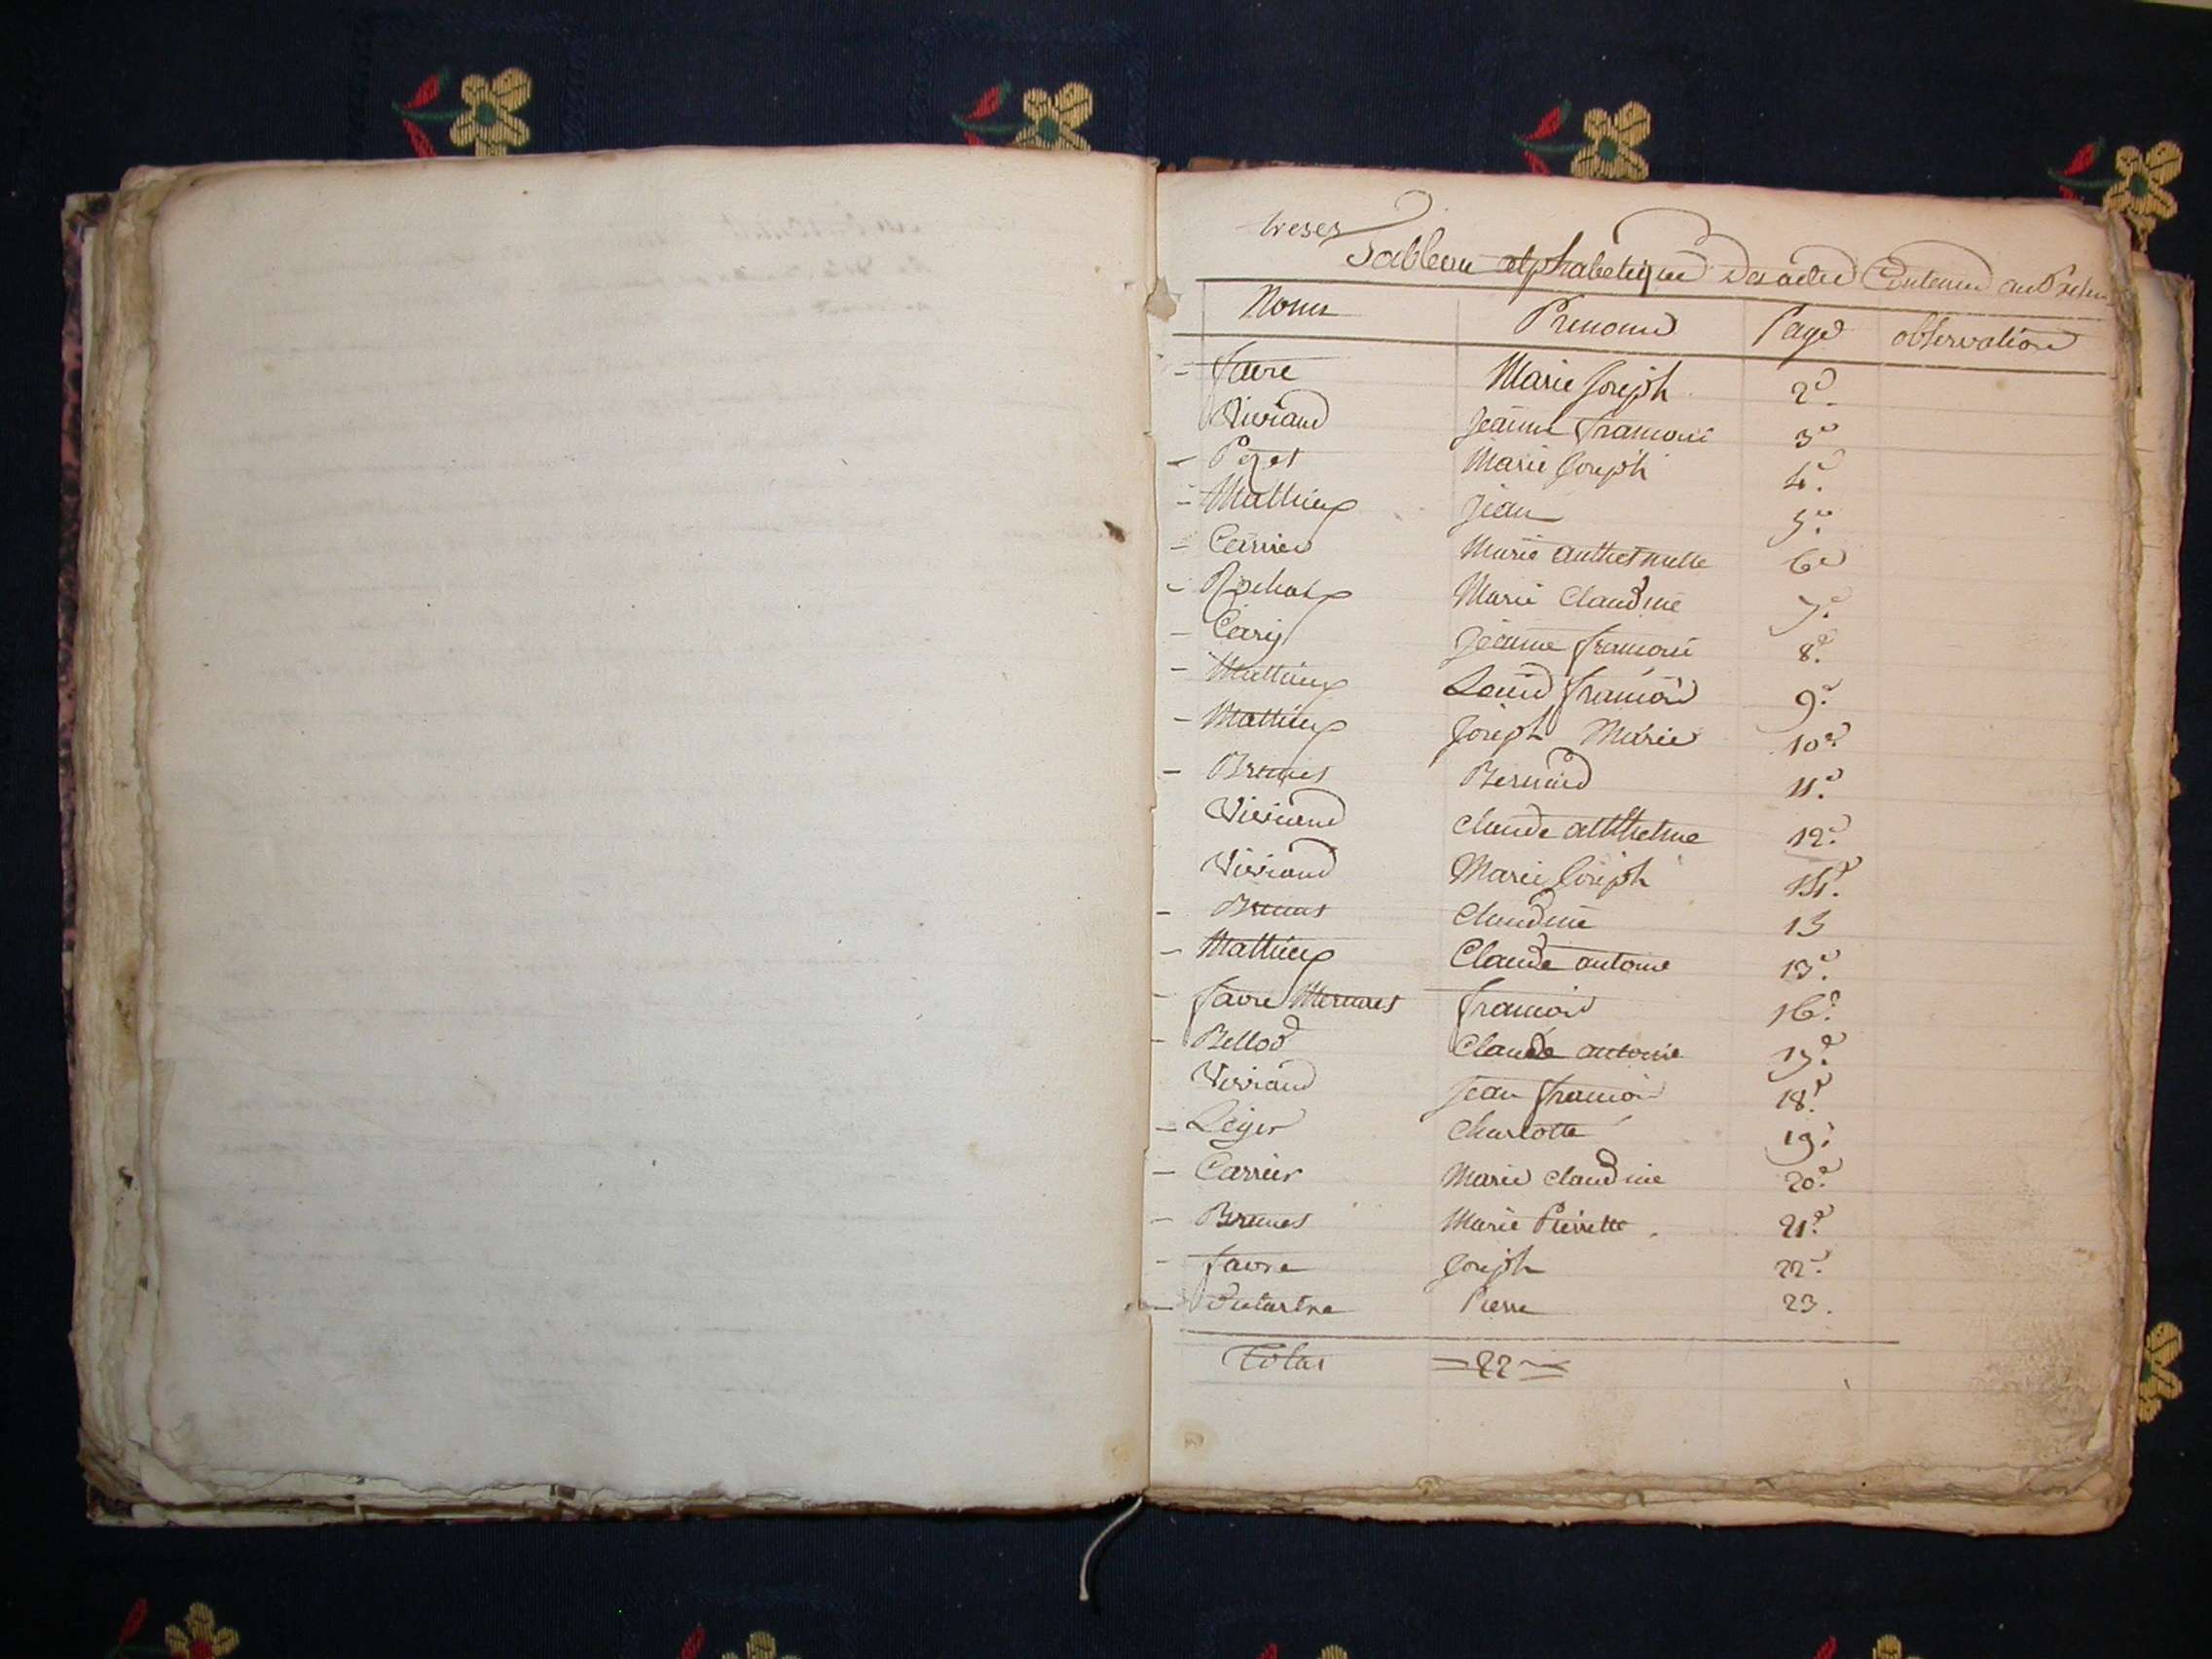 Tableau alphabetique des actes Contenus au Present
Noms Prenoms Pages observations
- favre Marie Joseph 2e.
Viviand Jeanne francoise 3e
- Pezet Marie Joseph 4e.
- Mathieux Jean 5e.
- Carrier Marie anthelmette 6e
- Rochaix Marie Claudine 7e.
- Jeanne francoise 8e.
- Mathieux Louis francois 9e.
- Mathieux Joseph Marie 10e.
- Brunet Bernard 11e.
Viviand Claude anthelme 12e.
Viviand Marie Joseph
- Brunet Claudine
- Mathieux Claude antoine
- favre Mermet francois 16e.
- Bellod Claude antoine 17e.
Viviand Jean francois 18e.
- Leger Charlotte 19e.
- Carrier Marie Claudine 20e.
- Brunet Marie Pierrette 21e.
- favre Joseph 22e.
- Dutartre Pierre 23.
Total = 22 =